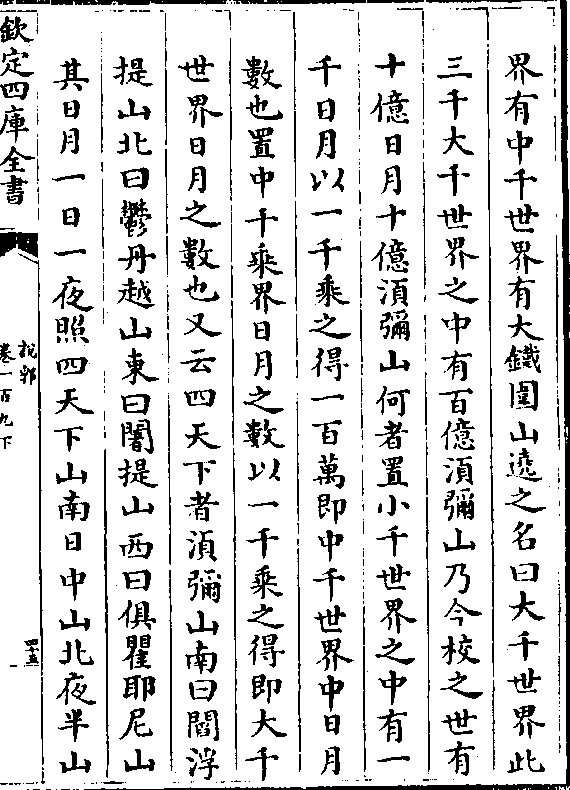 界有中千世界有大鐵圍山遶之名曰大千世界此
三千大千世界之中有百億須彌山乃今校之世有
十億日月十億須彌山何者置小千世界之中有一
千日月以一千乘之得一百萬即中千世界中日月
數也置中千乘界日月之數以一千乘之得即大千
世界日月之數也又云四天下者須彌山南曰閻浮
提山北曰鬱丹越山東曰闍提山西曰俱瞿耶尼山
其日月一日一夜照四天下山南日中山北夜半山
欽定四庫全書
說郛
卷一百九下
四十五